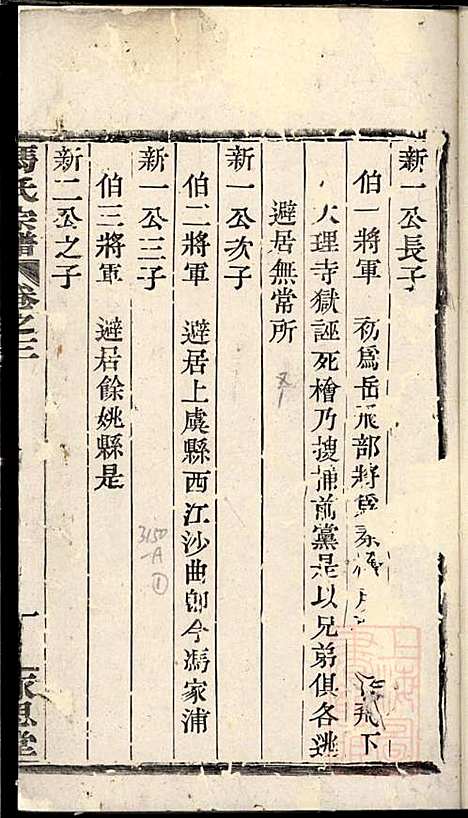 新一公長子
伯一將軍 初爲岳飛部將 飛下
大理寺獄誣死檜乃搜捕前黨是以兄弟俱各逃
避居無常所
新一公次子
伯二將軍 避居上虞縣西江沙曲卽今馮家浦
新一公三子
伯三將軍 避居餘姚縣是
新二公之子
馮氏宗譜 卷之三
3150
-A
①